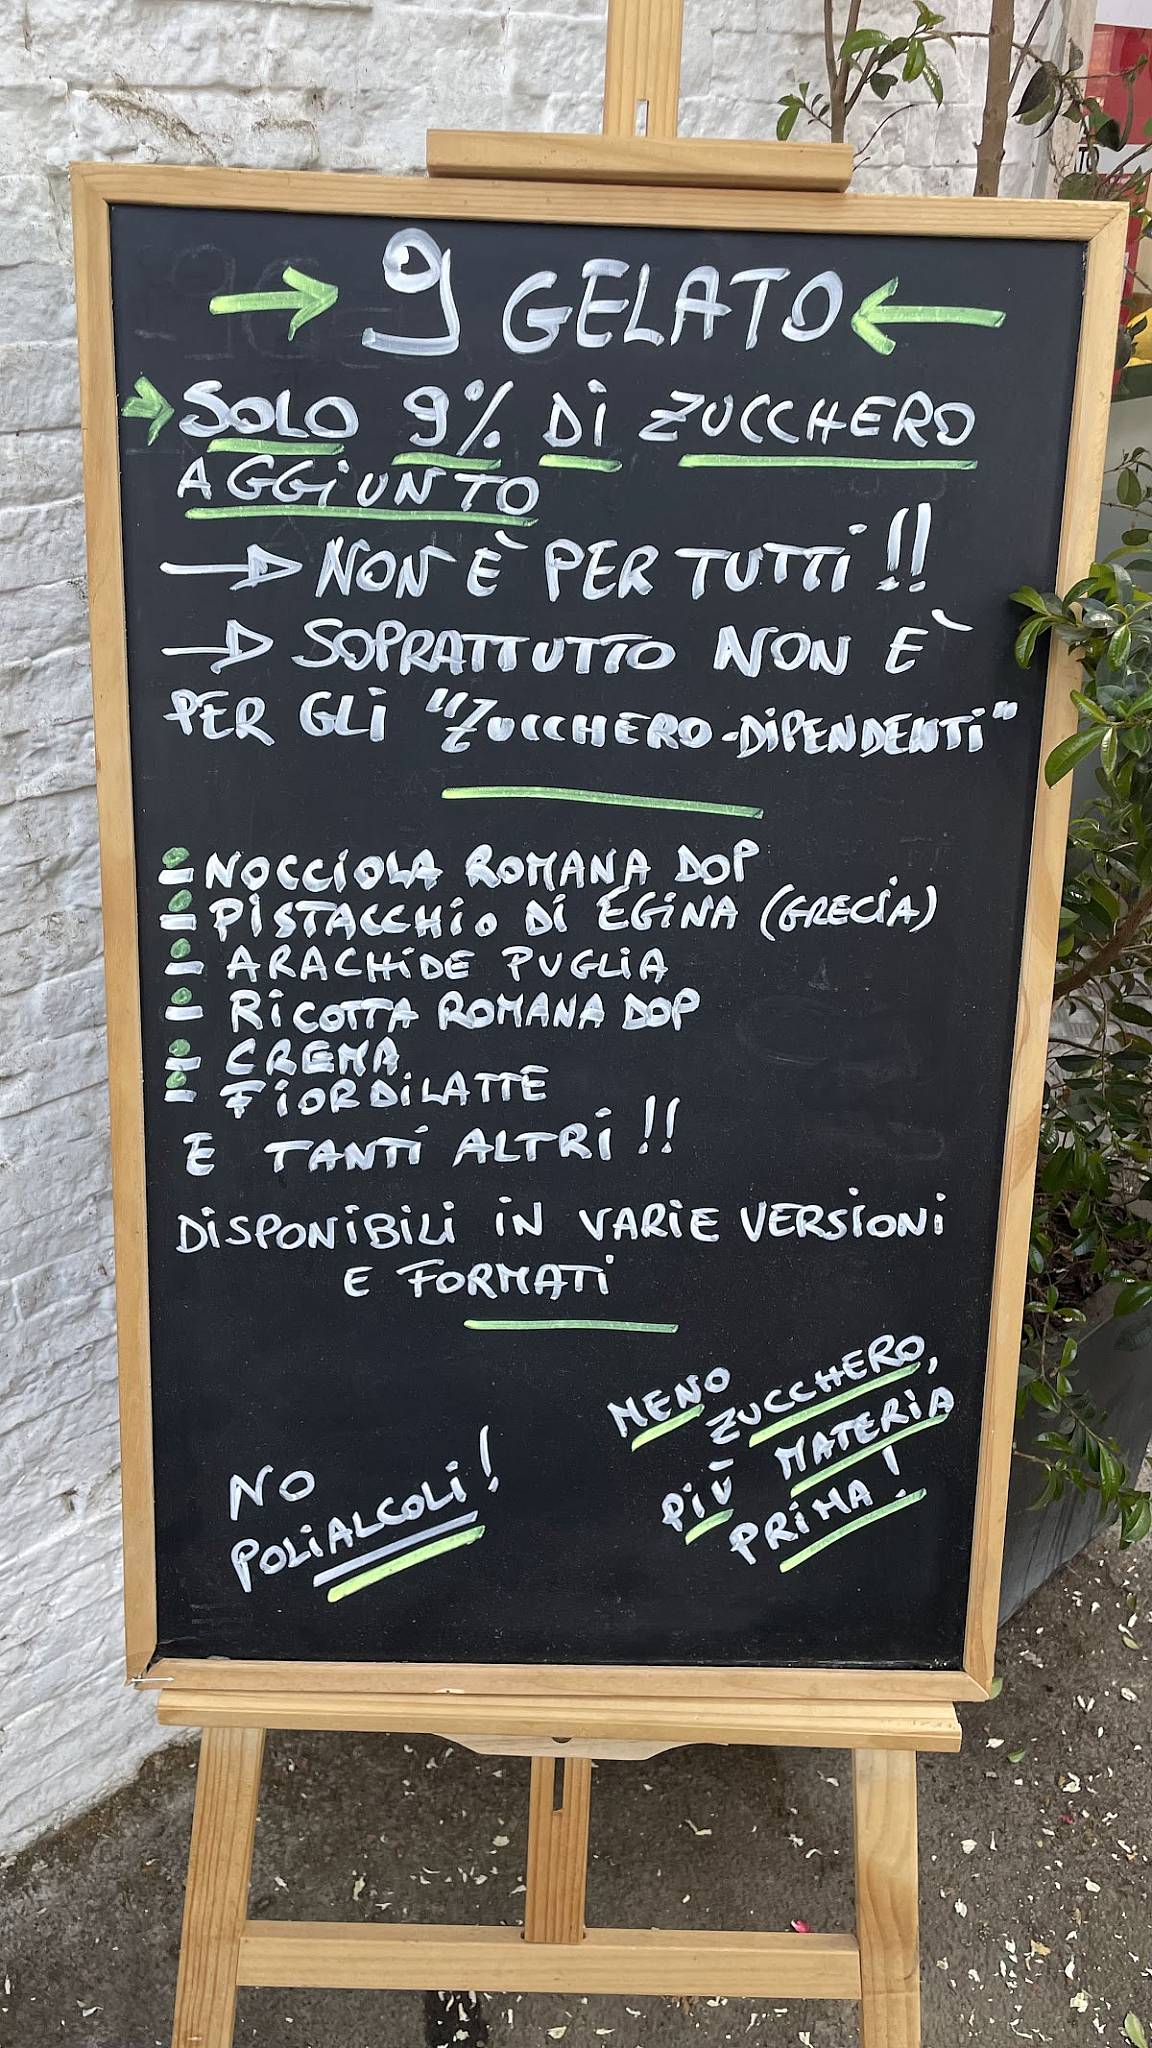 → 9 GELATO ←
→ SOLO 9% DI ZUCCHERO
AGGIUNTO
→ NON È PER TUTTI!!
→ SOPRATTUTTO NON È
PER GLI "ZUCCHERO-DIPENDENTI"
- NOCCIOLA ROMANA DOP
- PISTACCHIO DI EGINA (GRECIA)
- ARACHIDE PUGLIA
- RICOTTA ROMANA DOP
- CREMA
- FIORDILATTE
E TANTI ALTRI!!
DISPONIBILI IN VARIE VERSIONI
E FORMATI
NO
POLIALCOLI!
MENO
ZUCCHERO,
PIÙ MATERIA
PRIMA!
TO